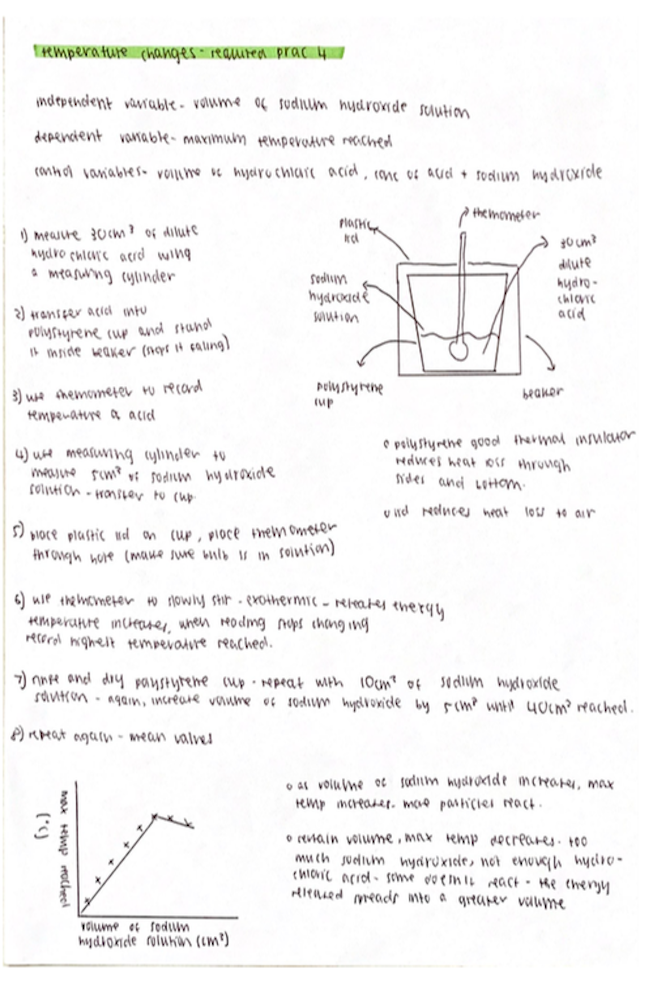 temperature changes - required prac 4
independent variable - volume of sodium hydroxide solution
dependent variable - maximum temperature reached
control variables - volume of hydrochloric acid, conc of acid + sodium hydroxide
1) measure 30cm³ of dilute
hydrochloric acid using
a measuring cylinder
2) transfer acid into
polystyrene cup and stand
it inside beaker (stops it falling)
3) use themometer to record
temperature of acid
4) use measuring cylinder to
measure 5cm³ of sodium hydroxide
solution - transfer to cup.
plastic
lid
themometer
30cm³
dilute
hydro-
chloric
acid
sodium
hydroxide
solution
polystyrene
cup
beaker
polystyrene good thermal insulator
reduces heat loss through
sides and bottom.
lid reduces heat loss to air
5) place plastic lid on cup, place themometer
through hole (make sure bulb is in solution)
6) use themometer to slowly stir - exothermic - releases energy
temperature increases, when reading stops changing
record highest temperature reached.
7) rinse and dry polystyrene cup - repeat with 10cm³ of sodium hydroxide
solution - again, increase volume of sodium hydroxide by 5cm³ until 40cm³ reached.
8) repeat again - mean values
max temp reached
(°C)
volume of sodium
hydroxide solution (cm³)
as volume of sodium hydroxide increases, max
temp increases. more particles react.
certain volume, max temp decreases. too
much sodium hydroxide, not enough hydro-
chloric acid - some doesn't react - the energy
released spreads into a greater volume